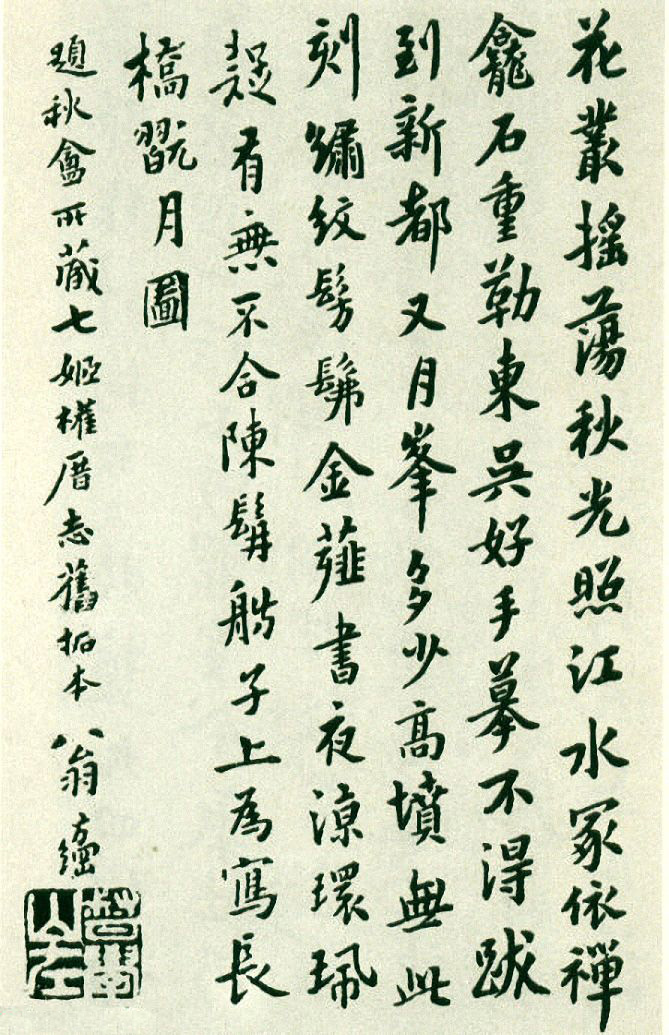 花叢搖蕩秋光照江水冢依禪
龕石重勒東吳好手摹不得跋
到新都又月峯多少高墳無此
刻鏽紋髣髴金薤書夜涼環珮
疑有無不合陳髯艄子上為寫長
橋翫月圖
題秋盦所藏七姬權厝志舊拓本 翁方綱